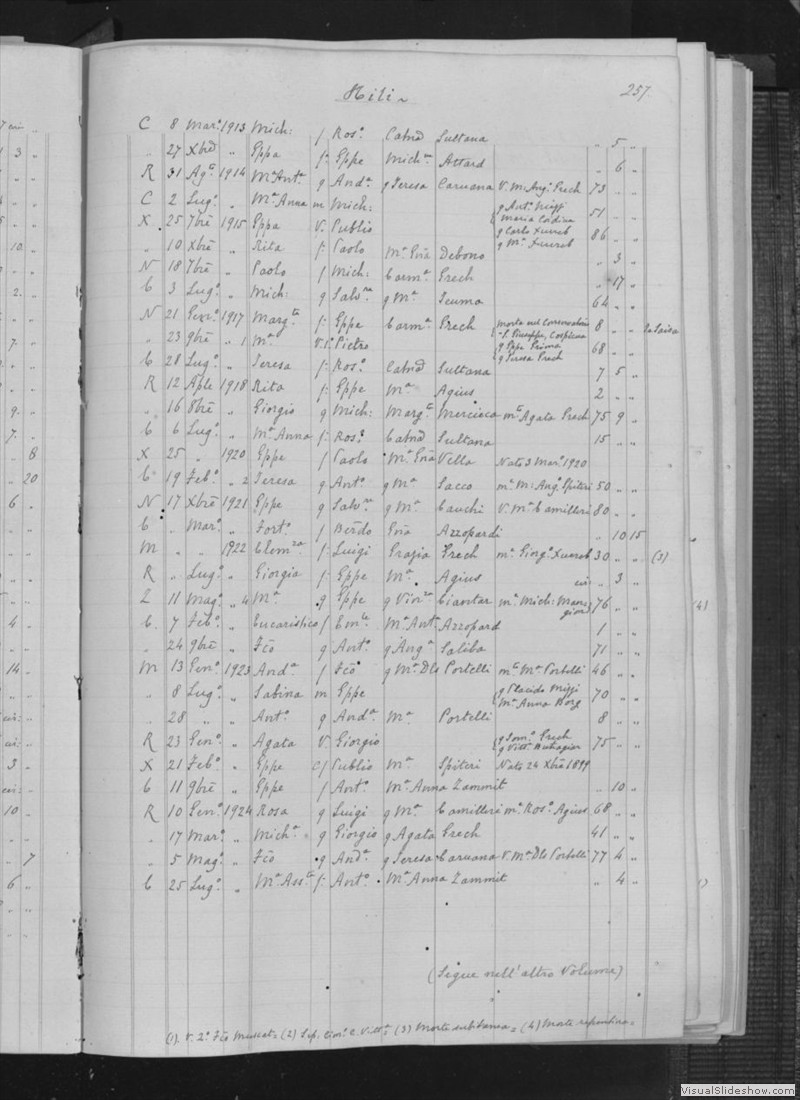 Hili
257
C 8 Mar.º 1913 Mich: f Ros.º Cath.ª Sultana „ 5 „
„ 27 Xbre „ Eppa f. Eppe Mich.na Attard „ 6 „
R 31 Ag.º 1914 M.ª Ant.ª g And.ª g Teresa Caruana V. M. Ang.ª Grech 73 „ „
C 2 Lug.º „ M.ª Anna m Mich: g Ant.º Mizzi 51 „ „
Maria Cordina
X 25 7bre 1915 Eppa V. Publio g Carlo Xuereb 86 „ „
g M.ª Xuereb
„ 10 Xbre „ Rita f. Paolo M.ª Gña Debono „ 3 „
N 18 7bre „ Paolo f Mich: Carm.ª Grech „ 17 „
C 3 Lug.º „ Mich: g Salv.re g M.ª Scuma 64 „ „
N 21 Gen.º 1917 Marg.ta f. Eppe Carm.ª Grech Morta nel Conservatorio 8 „ „
S. Giuseppe, Cospicua
„ 23 9bre „ M.ª V. 1.º Pietro g Eppe Prima 68 „ „
g Teresa Grech
C 28 Lug.º „ Teresa f. Ros.º Cath.ª Sultana 7 5 „
R 12 Aple 1918 Rita f. Eppe M.ª Agius 2 „ „
„ 16 8bre „ Giorgio g Mich: Marg.ta Mercieca m.º Agata Grech 75 9 „
C 6 Lug.º „ M.ª Anna f. Ros.º Cath.ª Sultana 15 „ „
X 25 „ 1920 Eppe f Paolo M.ª Gña Vella Nato 3 Mar.º 1920
C 19 Feb.º „ 2 Teresa g Ant.º g M.ª Sacco m.º M: Ang.º Spiteri 50 „ „
N 17 Xbre 1921 Eppe g Salv.re g M.ª Cauchi V. M.ª Camilleri 80 „ „
C „ Mar.º „ Fort.º f Berdo Gña Azzopardi „ 10 15
M „ „ 1922 Clem.za f. Luigi Grazia Grech m.º Giorg.º Xuereb 30 „ „ (3)
R „ Lug.º „ Giorgia f. Eppe M.ª Agius cir. „ 3 „
Z 11 Mag.º „ 4 M.ª g Eppe g Vior.za Ciantar m.º Mich: Man- 76 „ „ (4)
gion
C 7 Feb.º „ Eucaristico f Em.le M.ª Ant.ª Azzopard 1 „ „
„ 24 9bre „ Fco g Ant.º g Ang.ª Saliba 71 „ „
M 13 Gen.º 1923 And.ª f Fco g M.ª Dls Portelli m.º M.ª Portelli 46 „ „
„ 8 Lug.º „ Sabina m Eppe g Placido Mizzi 70 „ „
M.ª Anna Borg
„ 28 „ „ Ant.º g And.ª M.ª Portelli 8 „ „
R 23 Gen.º „ Agata V. Giorgio g Dom.º Grech 75 „ „
g Vitt.ª Buhagiar
X 21 Feb.º „ Eppe c/ Publio M.ª Spiteri Nato 24 Xbre 1899
C 11 9bre „ Eppe f Ant.º M.ª Anna Zammit „ 10 „
R 10 Gen.º 1924 Rosa g Luigi g M.ª Camilleri m. Ros.º Agius 68 „ „
„ 17 Mar.º „ Mich.ª g Giorgio g Agata Grech 41 „ „
„ 5 Mag.º „ Fco g And.ª g Teresa Caruana V. M.ª Dls Portelli 77 4 „
C 25 Lug.º „ M.ª Ass.ta f. Ant.º M.ª Anna Zammit „ 4 „
(Segue nell'altro Volume)
(1) V. 2.º Fco Muscat = (2) Sep. Cim.º C. Vitt.ª = (3) Morte subitanea = (4) Morte repentina =
VisualSlideshow.com